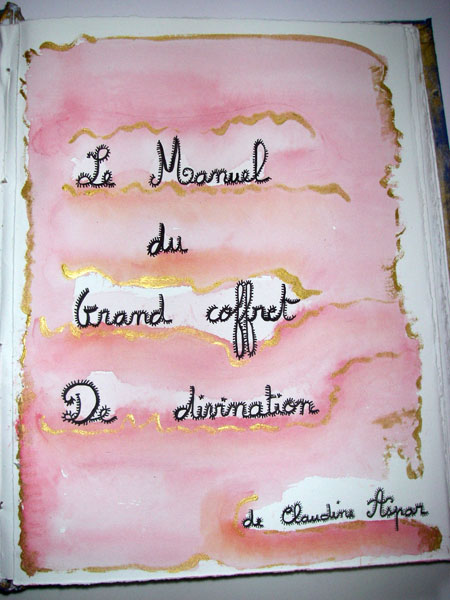 Le Manuel
du
Grand coffret
De divination
de Claudine Aspar